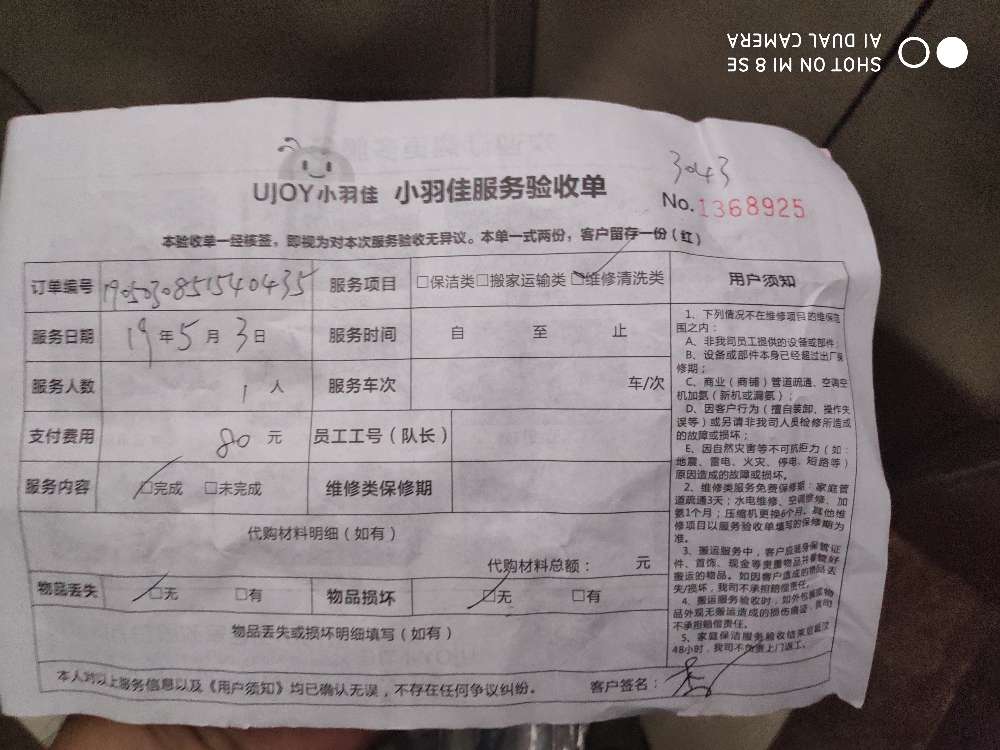 SHOT ON MI 8 SE
AI DUAL CAMERA
3043
UJOY小羽佳 小羽佳服务验收单
No.1368925
本验收单一经核签，即视为对本次服务验收无异议。本单一式两份，客户留存一份（红）
订单编号 190503085154​0435 服务项目 □保洁类□搬家运输类□维修清洗类
服务日期 19年5月3日 服务时间 自 至 止
服务人数 1人 服务车次 车/次
支付费用 80元 员工工号（队长）
服务内容 □完成 □未完成 维修类保修期
代购材料明细（如有）
代购材料总额： 元
物品丢失 □无 □有 物品损坏 □无 □有
物品丢失或损坏明细填写（如有）
本人对以上服务信息以及《用户须知》均已确认无误，不存在任何争议纠纷。 客户签名：
用户须知
1、下列情况不在维修项目的维保范
围之内：
A、非我司员工提供的设备或部件；
B、设备或部件本身已经超过出厂保
修期；
C、商业（商铺）管道疏通、空调空
机加氨（新机或漏氨）；
D、因客户行为（擅自装卸、操作失
误等）或另请非我司人员检修所造成
的故障或损坏；
E、因自然灾害等不可抗拒力（如：
地震、雷电、火灾、停电、短路等）
原因造成的故障或损坏。
2、维修类服务免费保修期：家庭管
道疏通3天；水电维修、空调维修、加
氨1个月；压缩机更换6个月。其他维
修项目以服务验收单填写的保修期为
准。
3、搬运服务中，客户应随身保管证
件、首饰、现金等贵重物品并看管好
搬运的物品。如因客户造成的物品丢
失/损坏，我司不承担赔偿责任。
4、搬运服务验收时，如外包装或物
品外观无搬运造成的损伤痕迹，我司
不承担赔偿责任。
5、家庭保洁服务验收结束后超过
48小时，我司不负责上门返工。